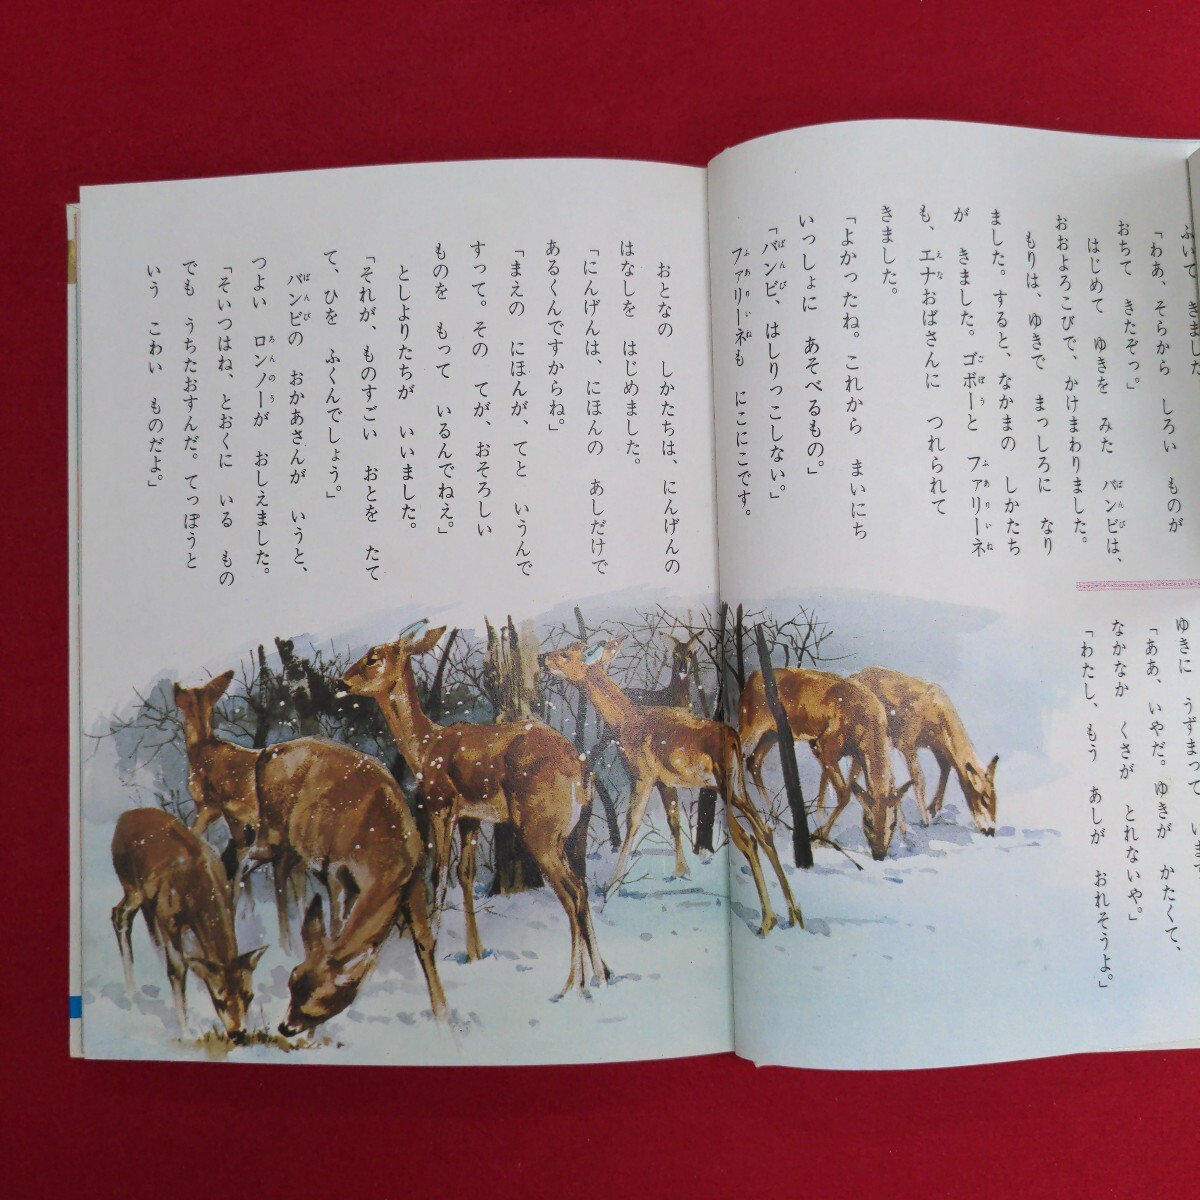 ふいて きました
「わあ、そらから しろい ものが
おちて きたぞっ。」
はじめて ゆきを みた バンビは、
おおよろこびで、かけまわりました。
もりは、ゆきで まっしろに なり
ました。すると、なかまの しかたち
が きました。ゴボーと ファリーネ
も、エナおばさんに つれられて
きました。
「よかったね。これから まいにち
いっしょに あそべるもの。」
「バンビ、はしりっこしない。」
ファリーネも にこにこです。
ゆきに うずまって います
「ああ、いやだ。ゆきが かたくて、
なかなか くさが とれないや。」
「わたし、もう あしが おれそうよ。」
おとなの しかたちは、にんげんの
はなしを はじめました。
「にんげんは、にほんの あしだけで
あるくんですからね。」
「まえの にほんが、てと いうんで
すって。その てが、おそろしい
ものを もって いるんでねえ。」
としよりたちが いいました。
「それが、ものすごい おとを たて
て、ひを ふくんでしょう。」
バンビの おかあさんが いうと、
つよい ロンノーが おしえました。
「そいつはね、とおくに いる もの
でも うちたおすんだ。てっぽうと
いう こわい ものだよ。」